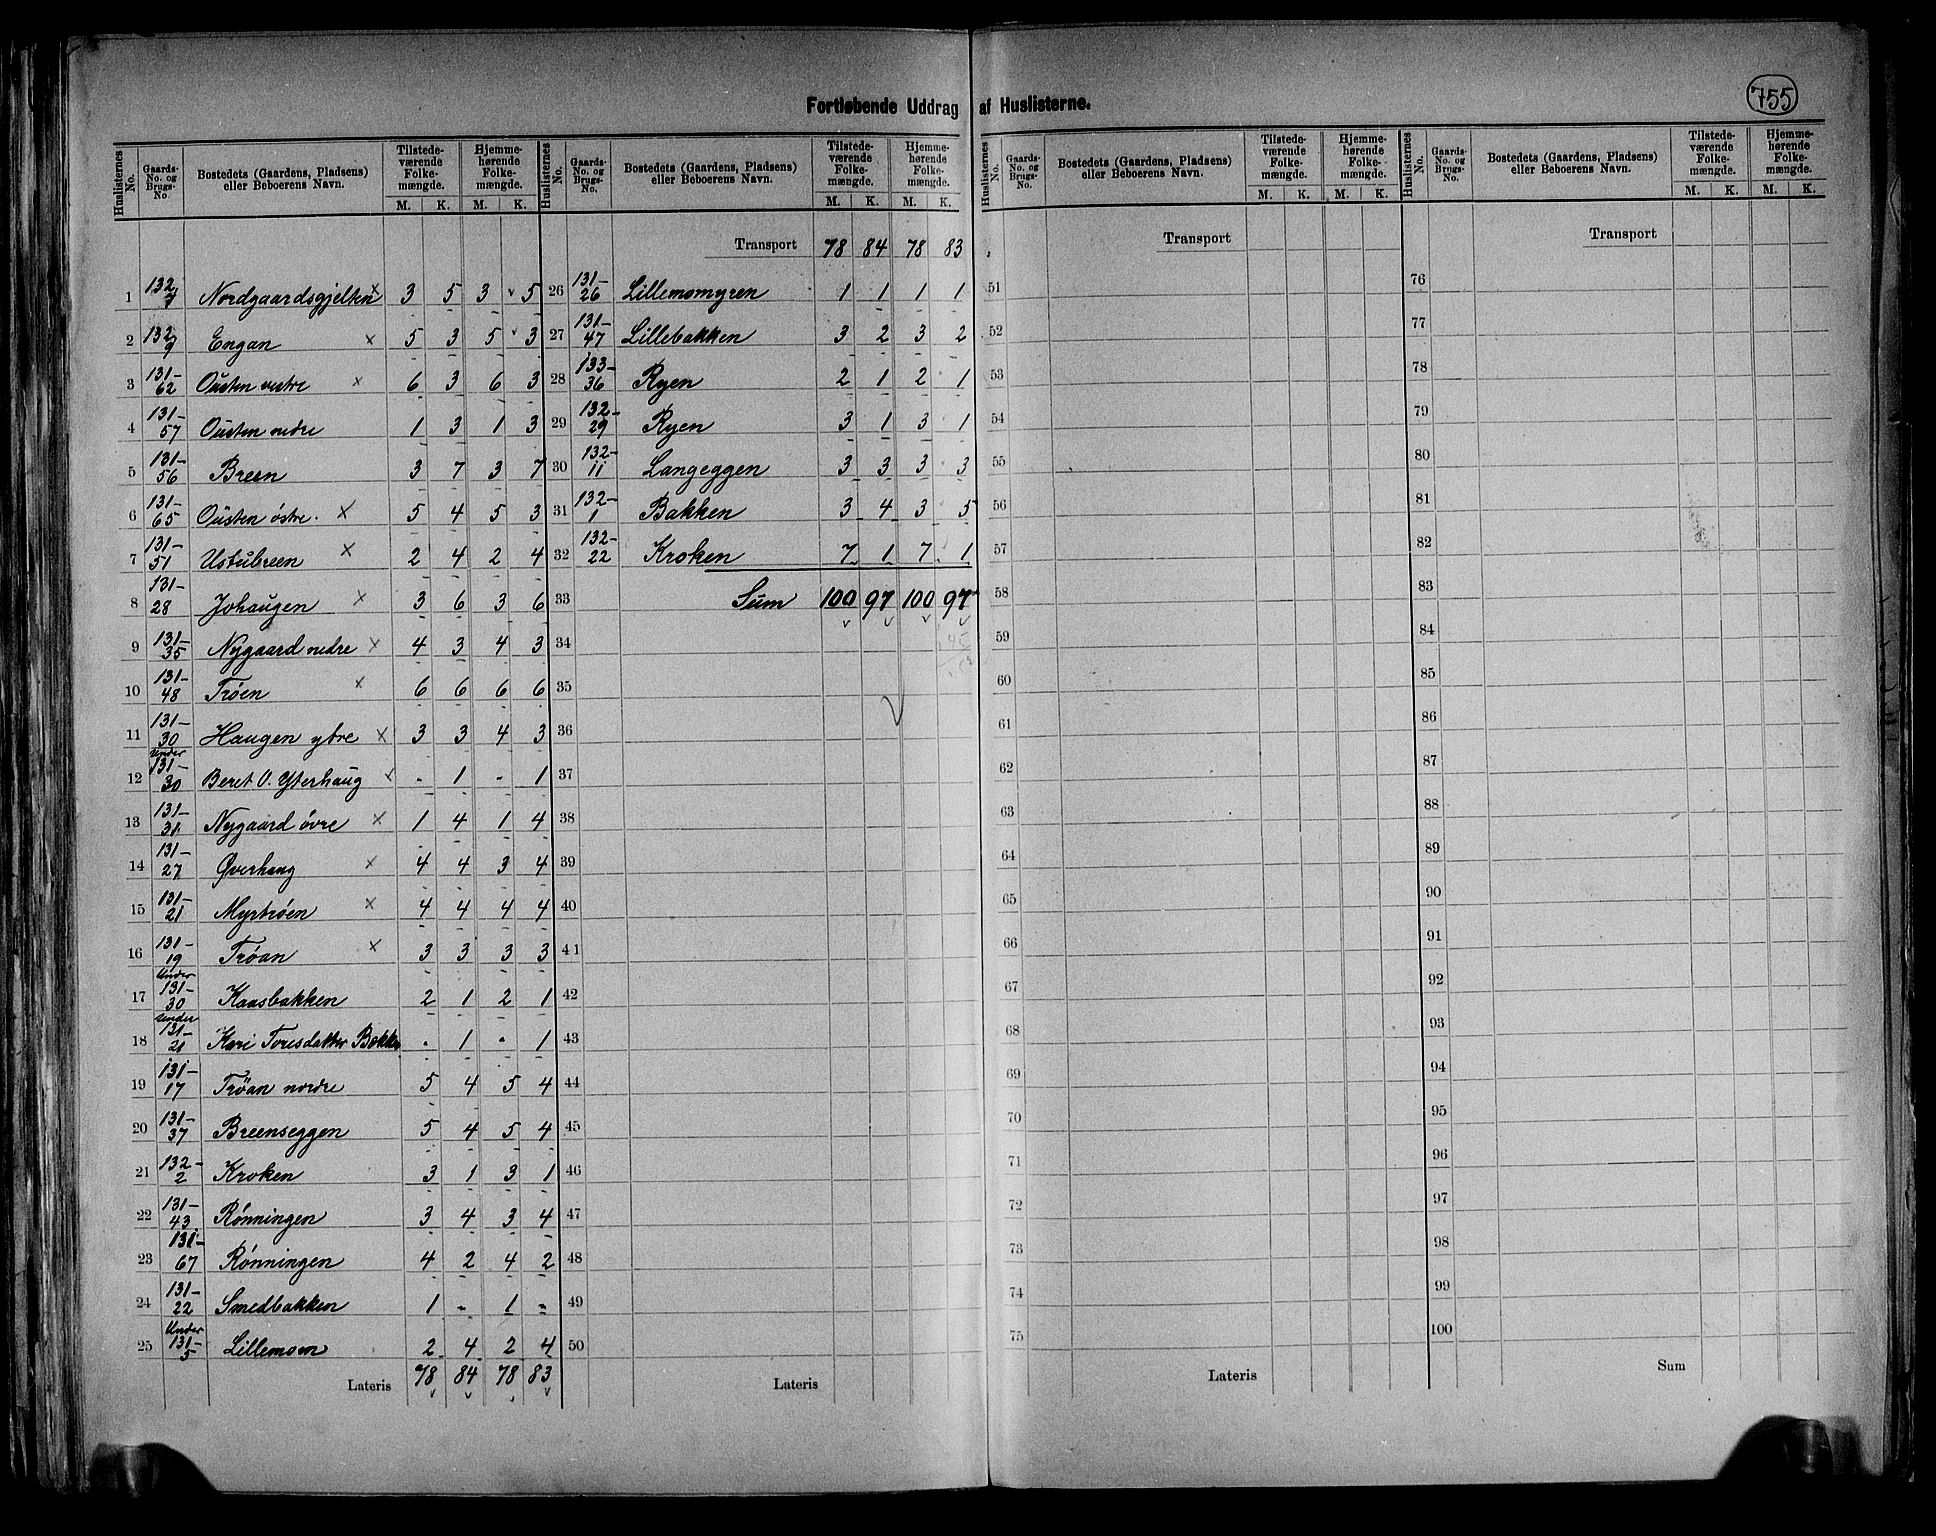 Fortløbende Uddrag af Huslisterne.
755
Huslisternes No. Gaards-No. og Brugs-No. Bostedets (Gaardens, Pladsens) eller Beboerens Navn. Tilstedeværende Folkemængde. Hjemmehørende Folkemængde. M. K. M. K.
1 132-7 Nordgaardsgjelten x 3 5 3 5
2 132-9 Engan x 5 3 5 3
3 131-62 Ousten vestre x 6 3 6 3
4 131-57 Ousten nedre 1 3 1 3
5 131-56 Breen 3 7 3 7
6 131-65 Ousten østre. x 5 4 5 3
7 131-51 Ustubreen x 2 4 2 4
8 131-28 Johaugen x 3 6 3 6
9 131-35 Nygaard nedre x 4 3 4 3
10 131-48 Trøen x 6 6 6 6
11 131-30 Haugen ytre x 3 3 4 3
12 Under 131-30 Beret O. Ytterhaug x - 1 - 1
13 131-31 Nygaard øvre x 1 4 1 4
14 131-27 Øverhaug x 4 4 3 4
15 131-21 Myrtrøen x 4 4 4 4
16 131-19 Trøan x 3 3 3 3
17 Under 131-30 Kaasbakken 2 1 2 1
18 Under 131-21 Kari Toresdatter Bakken - 1 - 1
19 131-17 Trøan nordre 5 4 5 4
20 131-37 Breenseggen 5 4 5 4
21 132-2 Kroken 3 1 3 1
22 131-43 Rønningen 3 4 3 4
23 131-67 Rønningen 4 2 4 2
24 131-22 Smedbakken 1 - 1 -
25 Under 131-5 Lillemoen 2 4 2 4
Lateris 78 84 78 83
Huslisternes No. Gaards-No. og Brugs-No. Bostedets (Gaardens, Pladsens) eller Beboerens Navn. Tilstedeværende Folkemængde. Hjemmehørende Folkemængde. M. K. M. K.
Transport 78 84 78 83
26 131-26 Lillemomyren 1 1 1 1
27 131-47 Lillebakken 3 2 3 2
28 133-36 Ryen 2 1 2 1
29 132-29 Ryen 3 1 3 1
30 132-11 Langeggen 3 3 3 3
31 132-1 Bakken 3 4 3 5
32 132-22 Kroken 7 1 7 1
33 Sum 100 97 100 97
34
35
36
37
38
39
40
41
42
43
44
45
46
47
48
49
50
Lateris
Huslisternes No. Gaards-No. og Brugs-No. Bostedets (Gaardens, Pladsens) eller Beboerens Navn. Tilstedeværende Folkemængde. Hjemmehørende Folkemængde. M. K. M. K.
Transport
51
52
53
54
55
56
57
58
59
60
61
62
63
64
65
66
67
68
69
70
71
72
73
74
75
Lateris
Huslisternes No. Gaards-No. og Brugs-No. Bostedets (Gaardens, Pladsens) eller Beboerens Navn. Tilstedeværende Folkemængde. Hjemmehørende Folkemængde. M. K. M. K.
Transport
76
77
78
79
80
81
82
83
84
85
86
87
88
89
90
91
92
93
94
95
96
97
98
99
100
Sum